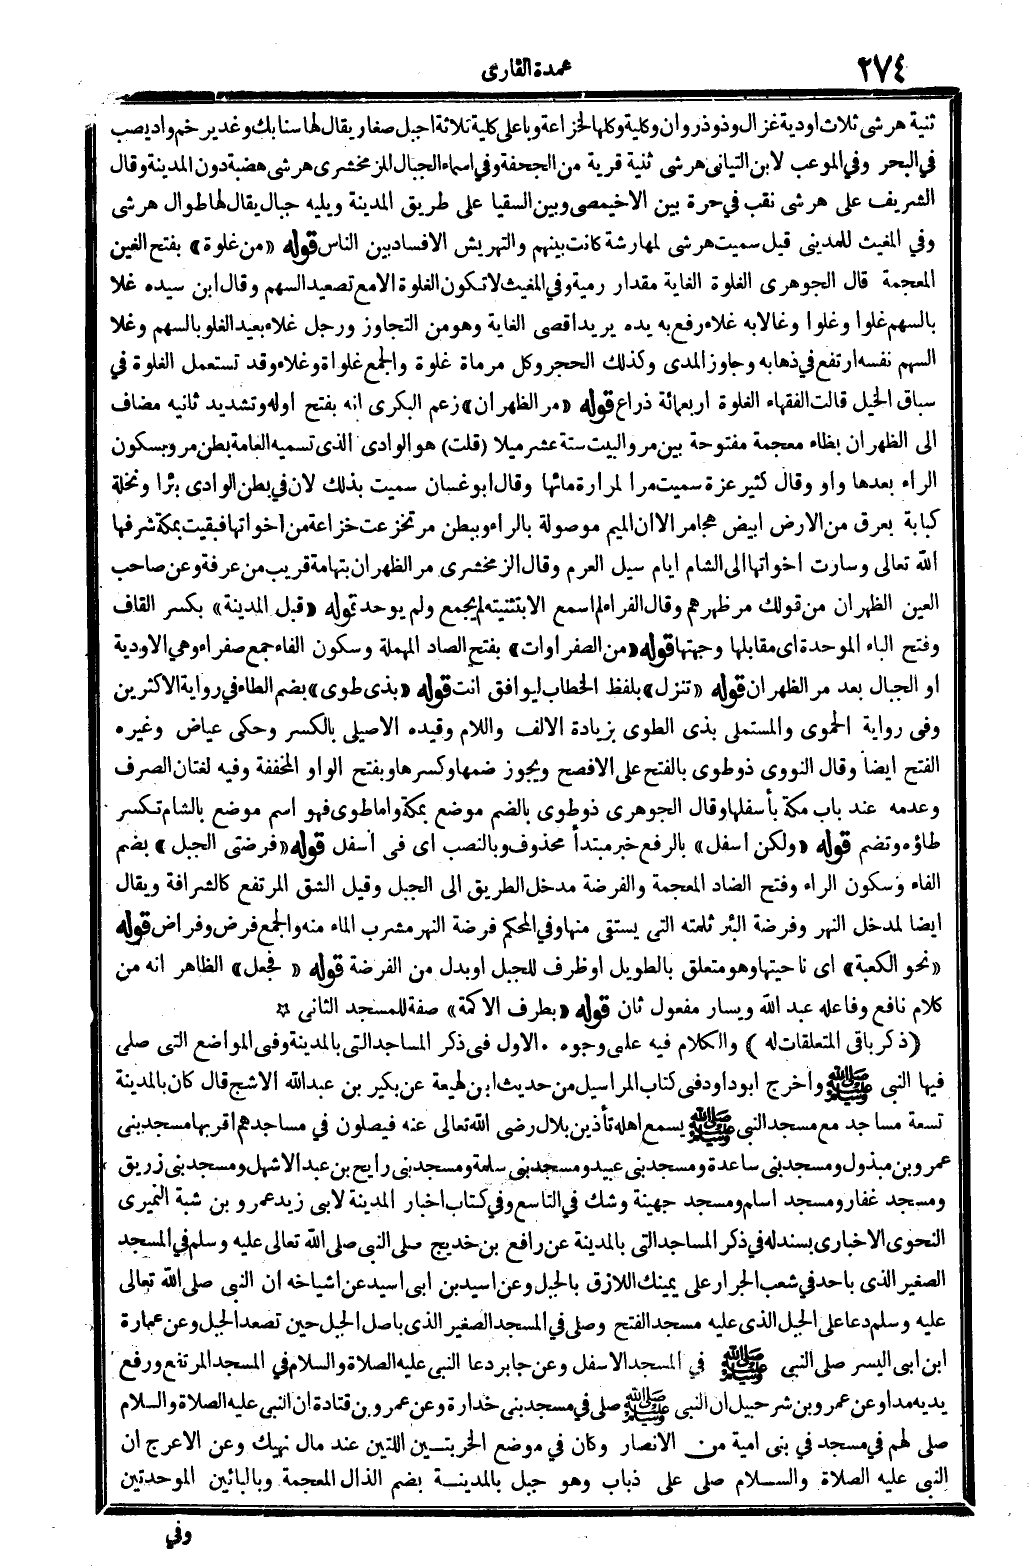 ٢٧٤
عمدة القارى
ثنية هرشى ثلاث اودية غزال وذو ذروان وكلية وكلها لخزاعة وباعلى كلية ثلاثة اجبل صغار يقال لها سنابك وغدير خم واد يصب
في البحر وفي الموعب لابن التيانى هرشى ثنية قرية من الجحفة وفي اسماء الجبال للزمخشرى هرشى هضبة دون المدينة وقال
الشريف على هرشى نقب في حرة بين الاخيمصى وبين السقيا على طريق المدينة ويليه جبال يقال لها طوال هرشى
وفي المغيث للمدينى قيل سميت هرشى لمهارشة كانت بينهم والتهريش الافساد بين الناس قوله «من غلوة» بفتح الغين
المعجمة قال الجوهرى الغلوة الغاية مقدار رمية وفي المغيث لا تكون الغلوة الا مع تصعيد السهم وقال ابن سيده غلا
بالسهم غلوا وغلوا وغالا به غلاء رفع به يده يريد اقصى الغاية وهو من التجاوز ورجل غلاء بعيد الغلو بالسهم وغلا
السهم نفسه ارتفع في ذهابه وجاوز المدى وكذلك الحجر وكل مرماة غلوة والجمع غلواة وغلاء وقد تستعمل الغلوة في
سباق الخيل قالت الفقهاء الغلوة اربعمائة ذراع قوله «مر الظهران» زعم البكرى انه بفتح اوله وتشديد ثانيه مضاف
الى الظهران بظاء معجمة مفتوحة بين مر والبيت ستة عشر ميلا (قلت) هو الوادى الذى تسميه العامة بطن مرو بسكون
الراء بعدها واو وقال كثير عزة سميت مرا لمرارة مائها وقال ابو غسان سميت بذلك لان في بطن الوادى بئرا ونخلة
كتابة بعرق من الارض ابيض هجا مر الا ان الميم موصولة بالراء وببطن مر تخزعت خزاعة من اخواتها فبقيت بمكة شرفها
الله تعالى وسارت اخواتها الى الشام ايام سيل العرم وقال الزمخشرى مر الظهران بتهامة قريب من عرفة وعن صاحب
العين الظهران من قولك مر ظهرهم وقال الفراء لم اسمع الا بتثنيته لم يجمع ولم يوحد قوله «قبل المدينة» بكسر القاف
وفتح الباء الموحدة اى مقابلها وجهتها قوله «من الصفراوات» بفتح الصاد المهملة وسكون الفاء جمع صفراء وهى الاودية
او الجبال بعد مر الظهران قوله «تنزل» بلفظ الخطاب ليوافق انت قوله «بذى طوى» بضم الطاء في رواية الاكثرين
وفى رواية الحموى والمستملى بذى الطوى بزيادة الالف واللام وقيده الاصيلى بالكسر وحكى عياض وغيره
الفتح ايضا وقال النووى ذو طوى بالفتح على الافصح ويجوز ضمها وكسرها وبفتح الواو المخففة وفيه لغتان الصرف
وعدمه عند باب مكة بأسفلها وقال الجوهرى ذو طوى بالضم موضع بمكة واما طوى فهو اسم موضع بالشام تكسر
طاؤه وتضم قوله «ولكن اسفل» بالرفع خبر مبتدأ محذوف وبالنصب اى فى اسفل قوله «فرضتى الجبل» بضم
الفاء وسكون الراء وفتح الضاد المعجمة والفرضة مدخل الطريق الى الجبل وقيل الشق المرتفع كالشرافة ويقال
ايضا لمدخل النهر وفرضة البئر ثلمته التى يستقى منها وفي المحكم فرضة النهر مشرب الماء منه والجمع فرض وفراض قوله
«نحو الكعبة» اى ناحيتها وهو متعلق بالطويل او ظرف للجبل او بدل من الفرضة قوله «فجعل» الظاهر انه من
كلام نافع وفاعله عبد الله ويسار مفعول ثان قوله «بطرف الاكمة» صفة للمسجد الثانى ✩
(ذكر باقى المتعلقات له) والكلام فيه على وجوه . الاول فى ذكر المساجد التى بالمدينة وفى المواضع التى صلى
فيها النبى ﷺ واخرج ابو داود فى كتاب المراسيل من حديث ابن لهيعة عن بكير بن عبدالله الاشج قال كان بالمدينة
تسعة مساجد مع مسجد النبى ﷺ يسمع اهله تأذين بلال رضى الله تعالى عنه فيصلون في مساجدهم اقربها مسجد بنى
عمرو بن مبذول ومسجد بنى ساعدة ومسجد بنى عبيد ومسجد بنى سلمة ومسجد بنى رايح بن عبد الاشهل ومسجد بنى زريق
ومسجد غفار ومسجد اسلم ومسجد جهينة وشك في التاسع وفي كتاب اخبار المدينة لابى زيد عمرو بن شبة النميرى
النحوى الاخبارى بسند له في ذكر المساجد التى بالمدينة عن رافع بن خديج صلى النبى صلى الله تعالى عليه وسلم في المسجد
الصغير الذى باحد في شعب الجرار على يمينك اللازق بالجبل وعن اسيد بن ابى اسيد عن اشياخه ان النبى صلى الله تعالى
عليه وسلم دعا على الجبل الذى عليه مسجد الفتح وصلى في المسجد الصغير الذى باصل الجبل حين تصعد الجبل وعن عمارة
ابن ابى اليسر صلى النبى ﷺ في المسجد الاسفل وعن جابر دعا النبى عليه الصلاة والسلام في المسجد المرتفع ورفع
يديه مدا وعن عمرو بن شرحبيل ان النبى ﷺ صلى في مسجد بنى خدارة وعن عمرو بن قتادة ان النبى عليه الصلاة والسلام
صلى لهم في مسجد في بنى امية من الانصار وكان في موضع الخربتين اللتين عند مال نهيك وعن الاعرج ان
النبى عليه الصلاة والسلام صلى على ذباب وهو جبل بالمدينة بضم الذال المعجمة وبالبائين الموحدتين
وفي